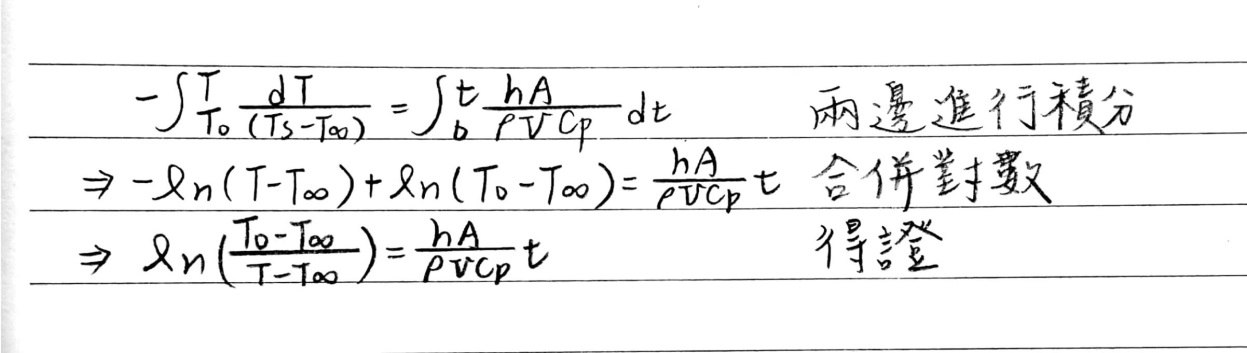 -∫_{T₀}^{T} dT/(Ts-T∞) = ∫_{b}^{t} hA/(ρVCp) dt 兩邊進行積分
⇒ -ln(T-T∞)+ln(T₀-T∞)= hA/(ρVCp) t 合併對數
⇒ ln((T₀-T∞)/(T-T∞))= hA/(ρVCp) t 得證